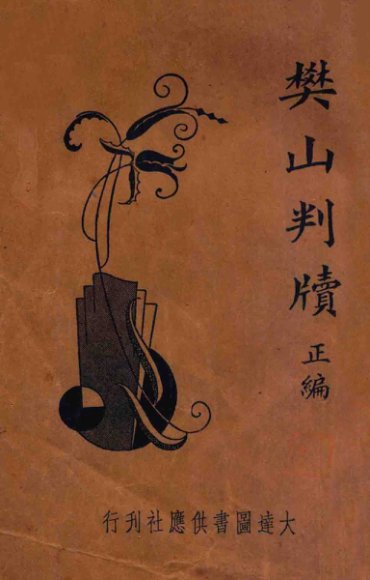 樊山判牘
正編
大達圖書供應社刊行